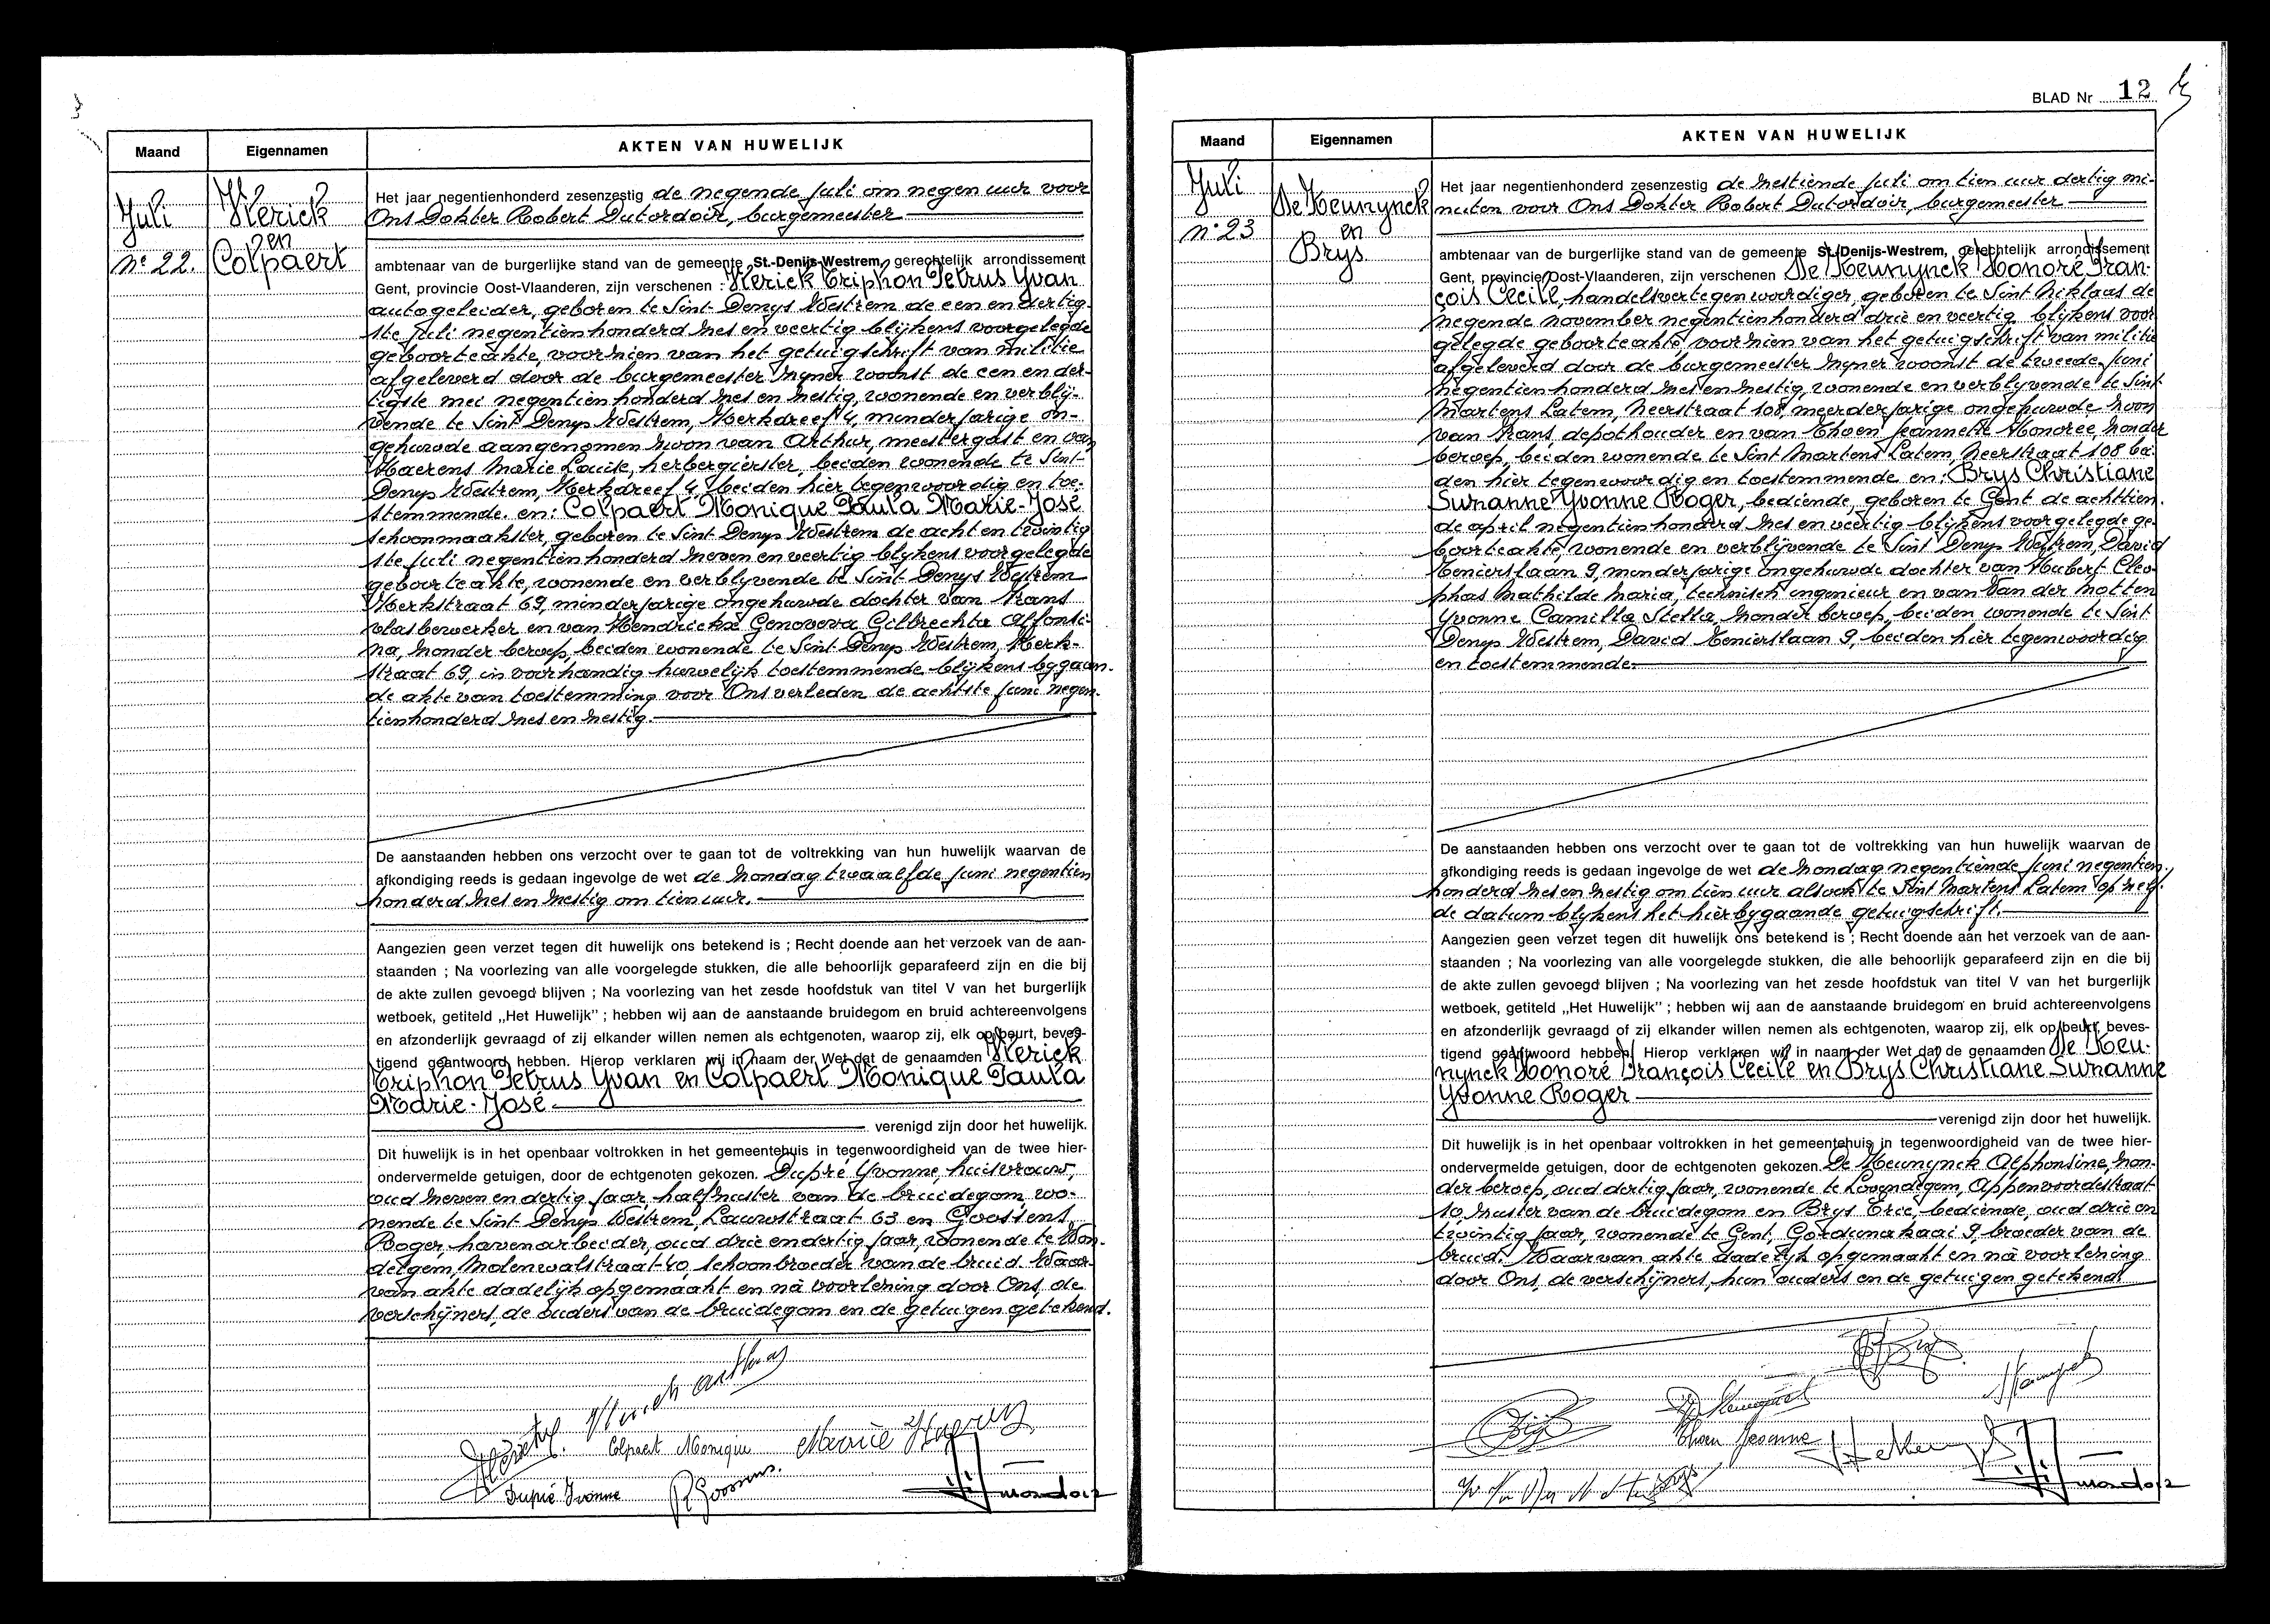 Maand
Eigennamen
AKTEN VAN HUWELIJK
Juli
nº 22.
Herick
en
Colpaert
Het jaar negentienhonderd zesenzestig de negende juli om negen uur voor
Ons Dokter Robert Dutordoir, burgemeester
ambtenaar van de burgerlijke stand van de gemeente St.-Denijs-Westrem, gerechtelijk arrondissement
Gent, provincie Oost-Vlaanderen, zijn verschenen : Herick Triphon Petrus Yvan
autogeleider, geboren te Sint Denys Westrem de een en dertig-
ste juli negentienhonderd zes en veertig blijkens voorgelegde
geboorteakte, voorzien van het getuigschrift van militie
afgeleverd door de burgemeester zyner woonst de een en der-
tigste mei negentienhonderd zes en zestig, wonende en verblij-
vende te Sint Denys Westrem, Kerkdreef 4, minderjarige on-
gehuwde aangenomen zoon van Arthur, meestergast en van
Haerens Marie Louise, herbergierster, beiden wonende te Sint-
Denys Westrem, Kerkdreef 4, beiden hier tegenwoordig en toe-
stemmende. en: Colpaert Monique Paula Marie-José
schoonmaakster, geboren te Sint Denys Westrem de acht en twintig
ste juli negentienhonderd zeven en veertig blykens voorgelegde
geboorteakte, wonende en verblyvende te Sint Denys Westrem
Kerkstraat 69, minderjarige ongehuwde dochter van Frans
vlasbewerker en van Hendrickx Genoveva Gilbrechta Alfonsi-
na, zonder beroep, beiden wonende te Sint Denys Westrem, Kerk-
straat 69, in voorhandig huwelijk toestemmende blijkens bygaan-
de akte van toestemming voor Ons verleden de achtste juni negen-
tienhonderd zes en zestig.
De aanstaanden hebben ons verzocht over te gaan tot de voltrekking van hun huwelijk waarvan de
afkondiging reeds is gedaan ingevolge de wet de zondag twaalfde juni negentien
honderd zes en zestig om tien uur.
Aangezien geen verzet tegen dit huwelijk ons betekend is ; Recht doende aan het verzoek van de aan-
staanden ; Na voorlezing van alle voorgelegde stukken, die alle behoorlijk geparafeerd zijn en die bij
de akte zullen gevoegd blijven ; Na voorlezing van het zesde hoofdstuk van titel V van het burgerlijk
wetboek, getiteld „Het Huwelijk" ; hebben wij aan de aanstaande bruidegom en bruid achtereenvolgens
en afzonderlijk gevraagd of zij elkander willen nemen als echtgenoten, waarop zij, elk op beurt, beves-
tigend geantwoord hebben. Hierop verklaren wij in naam der Wet dat de genaamden Herick
Triphon Petrus Yvan en Colpaert Monique Paula
Marie-José
verenigd zijn door het huwelijk.
Dit huwelijk is in het openbaar voltrokken in het gemeentehuis in tegenwoordigheid van de twee hier-
ondervermelde getuigen, door de echtgenoten gekozen. Dupré Yvonne, huisvrouw,
oud zeven en dertig jaar halfzuster van de bruidegom, wo-
nende te Sint Denys Westrem, Lauwstraat 63 en Goossens
Roger, havenarbeider, oud drie en dertig jaar, wonende te Won-
delgem, Molenwalstraat 40, schoonbroeder van de bruid. Waar-
van akte dadelijk opgemaakt en nà voorlezing door Ons, de
verschijners, de ouders van de bruidegom en de getuigen getekend.
Colpaert Monique
Dupré Yvonne
R. Goossens.
BLAD Nr 12
Maand
Eigennamen
AKTEN VAN HUWELIJK
Juli
nº 23
De Keunynck
en
Brys
Het jaar negentienhonderd zesenzestig de zestiende juli om tien uur dertig mi-
nuten voor Ons Dokter Robert Dutordoir, burgemeester
ambtenaar van de burgerlijke stand van de gemeente St.-Denijs-Westrem, gerechtelijk arrondissement
Gent, provincie Oost-Vlaanderen, zijn verschenen De Keunynck Honoré Fran-
çois Cecile, handelsvertegenwoordiger, geboren te Sint Niklaas de
negende november negentienhonderd drie en veertig blykens voor
gelegde geboorteakte, voorzien van het getuigschrift van militie
afgeleverd door de burgemeester zyner woonst de tweede juni
negentienhonderd zes en zestig, wonende en verblyvende te Sint
Martens Latem, Neerstraat 108, meerderjarige ongehuwde zoon
van Frans, depothouder en van Thoen Jeannette Honoree, zonder
beroep, beiden wonende te Sint Martens Latem, Neerstraat 108 bei
den hier tegenwoordig en toestemmende en: Brys Christiane
Suzanne Yvonne Roger, bediende, geboren te Gent de achttien-
de april negentienhonderd zes en veertig blijkens voorgelegde ge-
boorteakte, wonende en verblijvende te Sint Denys Westrem, David
Tenierslaan 9, minderjarige ongehuwde dochter van Hubert Cleo
phas Mathilde Maria, technisch ingenieur en van Van der Notten
Yvonne Camilla Stella, zonder beroep, beiden wonende te Sint
Denys Westrem, David Tenierslaan 9, beiden hier tegenwoordig
en toestemmende.
De aanstaanden hebben ons verzocht over te gaan tot de voltrekking van hun huwelijk waarvan de
afkondiging reeds is gedaan ingevolge de wet de zondag negentiende juni negentien-
honderd zes en zestig om tien uur alsook te Sint Martens Latem op zelf-
de datum blykens het hierbygaande getuigschrift.
Aangezien geen verzet tegen dit huwelijk ons betekend is ; Recht doende aan het verzoek van de aan-
staanden ; Na voorlezing van alle voorgelegde stukken, die alle behoorlijk geparafeerd zijn en die bij
de akte zullen gevoegd blijven ; Na voorlezing van het zesde hoofdstuk van titel V van het burgerlijk
wetboek, getiteld „Het Huwelijk" ; hebben wij aan de aanstaande bruidegom en bruid achtereenvolgens
en afzonderlijk gevraagd of zij elkander willen nemen als echtgenoten, waarop zij, elk op beurt, beves-
tigend geantwoord hebben. Hierop verklaren wij in naam der Wet dat de genaamden De Keu-
nynck Honoré François Cecile en Brys Christiane Suzanne
Yvonne Roger
verenigd zijn door het huwelijk.
Dit huwelijk is in het openbaar voltrokken in het gemeentehuis in tegenwoordigheid van de twee hier-
ondervermelde getuigen, door de echtgenoten gekozen. De Keunynck Alphonsine, zon-
der beroep, oud dertig jaar, wonende te Lovendegem, Appenvoordestraat
10, zuster van de bruidegom en Brys Eric, bediende, oud drie en
twintig jaar, wonende te Gent, Gordunakaai 9, broeder van de
bruid. Waarvan akte dadelijk opgemaakt en nà voorlezing
door Ons, de verschijners, hun ouders en de getuigen getekend